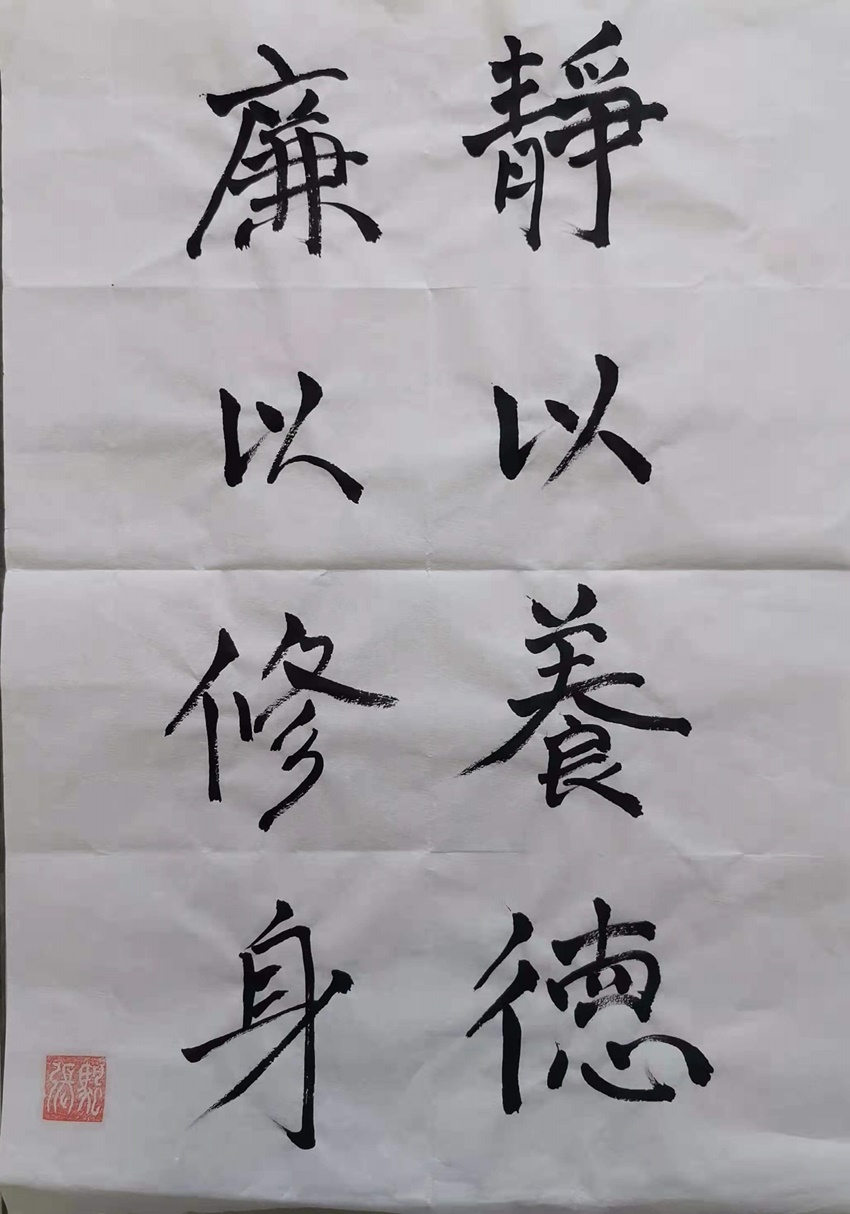 靜以養德
廉以修身